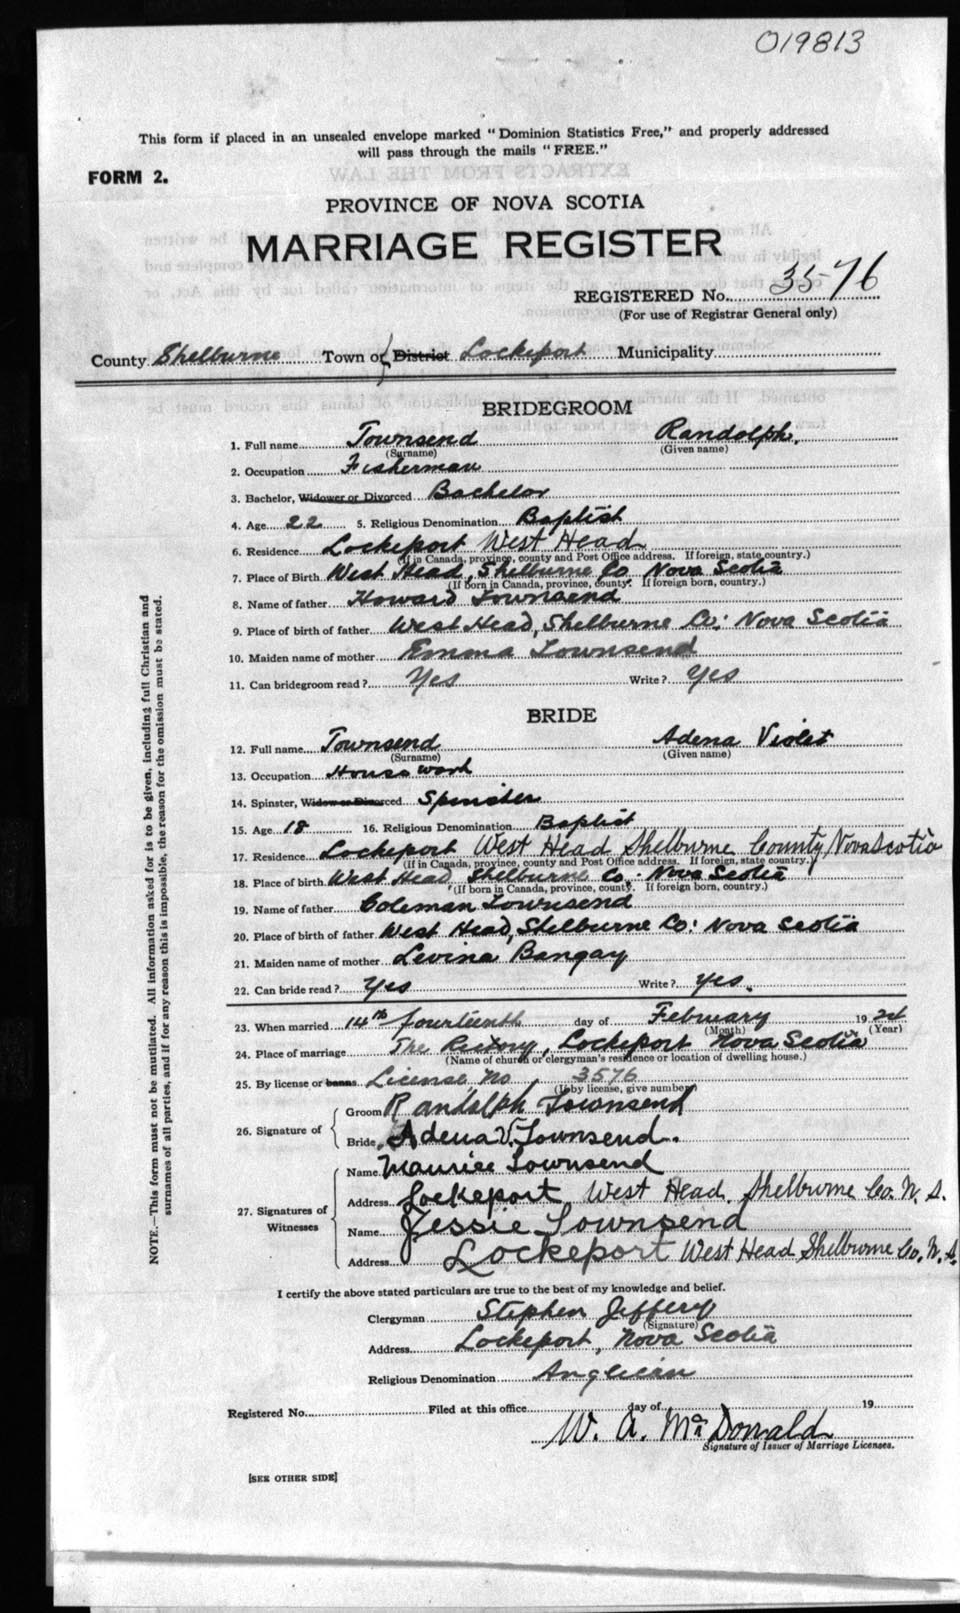 019813
This form if placed in an unsealed envelope marked "Dominion Statistics Free," and properly addressed
will pass through the mails "FREE."
FORM 2.
PROVINCE OF NOVA SCOTIA
MARRIAGE REGISTER
REGISTERED No. 3576
(For use of Registrar General only)
County Shelburne Town or District Lockeport Municipality
BRIDEGROOM
1. Full name Townsend Randolph.
(Surname) (Given name)
2. Occupation Fisherman
3. Bachelor, Widower or Divorced Bachelor
4. Age 22 5. Religious Denomination Baptist
6. Residence Lockeport West Head
(If in Canada, province, county and Post Office address. If foreign, state country.)
7. Place of Birth West Head, Shelburne Co Nova Scotia
(If born in Canada, province, county. If foreign born, country.)
8. Name of father Howard Townsend
9. Place of birth of father West Head, Shelburne Co: Nova Scotia
10. Maiden name of mother Emma Townsend
11. Can bridegroom read? Yes Write? Yes
BRIDE
12. Full name Townsend Adena Violet
(Surname) (Given name)
13. Occupation House work
14. Spinster, Widow or Divorced Spinster
15. Age 18 16. Religious Denomination Baptist
17. Residence Lockeport West Head Shelburne County Nova Scotia
(If in Canada, province, county and Post Office address. If foreign, state country.)
18. Place of birth West Head Shelburne Co. Nova Scotia
(If born in Canada, province, county. If foreign born, country.)
19. Name of father Coleman Townsend
20. Place of birth of father West Head, Shelburne Co: Nova Scotia
21. Maiden name of mother Levina Bangay
22. Can bride read? Yes Write? Yes.
23. When married 14th fourteenth day of February 1924
(Month) (Year)
24. Place of marriage The Rectory, Lockeport Nova Scotia
(Name of church or clergyman's residence or location of dwelling house.)
25. By license or banns. License, No 3576
(If by license, give number)
26. Signature of
Groom Randolph Townsend
Bride Adena V. Townsend.
27. Signatures of Witnesses
Name Maurice Townsend
Address Lockeport West Head. Shelburne Co. N. S.
Name Jessie Townsend
Address Lockeport West Head Shelburne Co. N. S.
I certify the above stated particulars are true to the best of my knowledge and belief.
Clergyman Stephen Jeffery
(Signature)
Address Lockeport, Nova Scotia
Religious Denomination Anglican
Registered No. Filed at this office day of 19
W. A. McDonald
Signature of Issuer of Marriage Licenses.
[SEE OTHER SIDE]
NOTE.—This form must not be mutilated. All information asked for is to be given, including full Christian and
surnames of all parties, and if for any reason this is impossible, the reason for the omission must be stated.